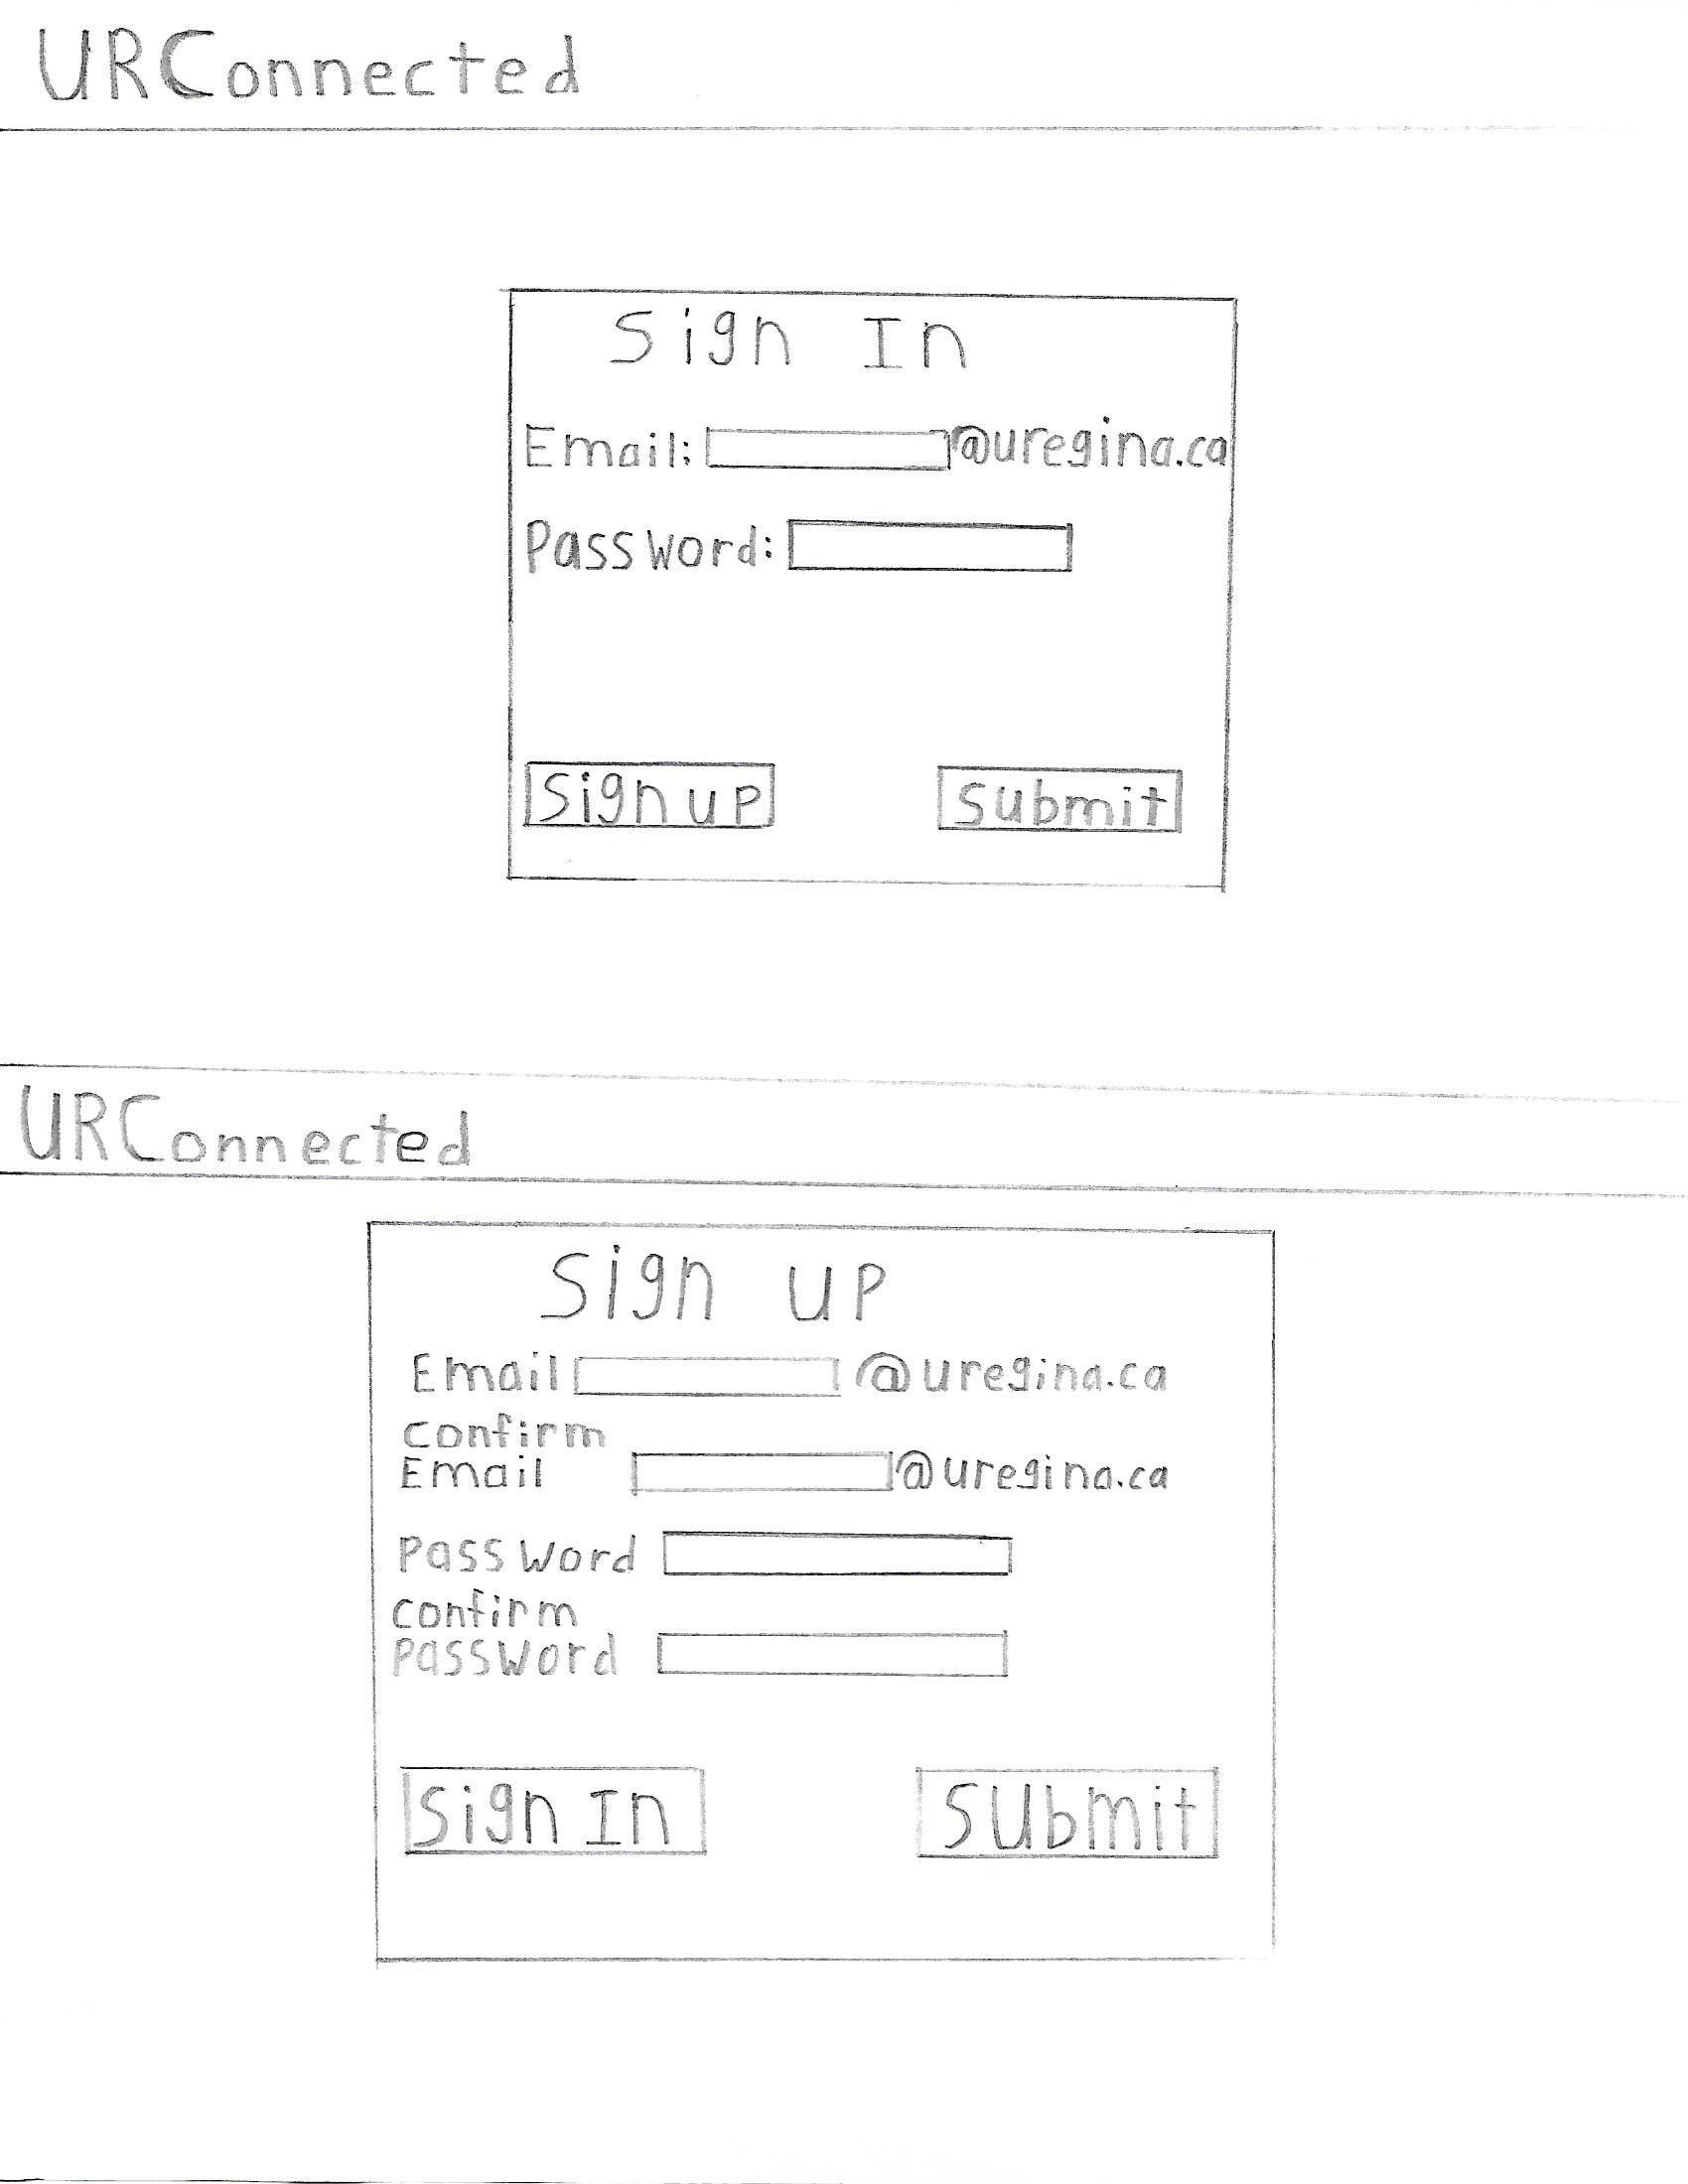 URConnected
Sign In
Email: @uregina.ca
Password:
Sign up
Submit
URConnected
Sign up
Email @uregina.ca
confirm
Email @uregina.ca
Password
confirm
Password
Sign In
Submit